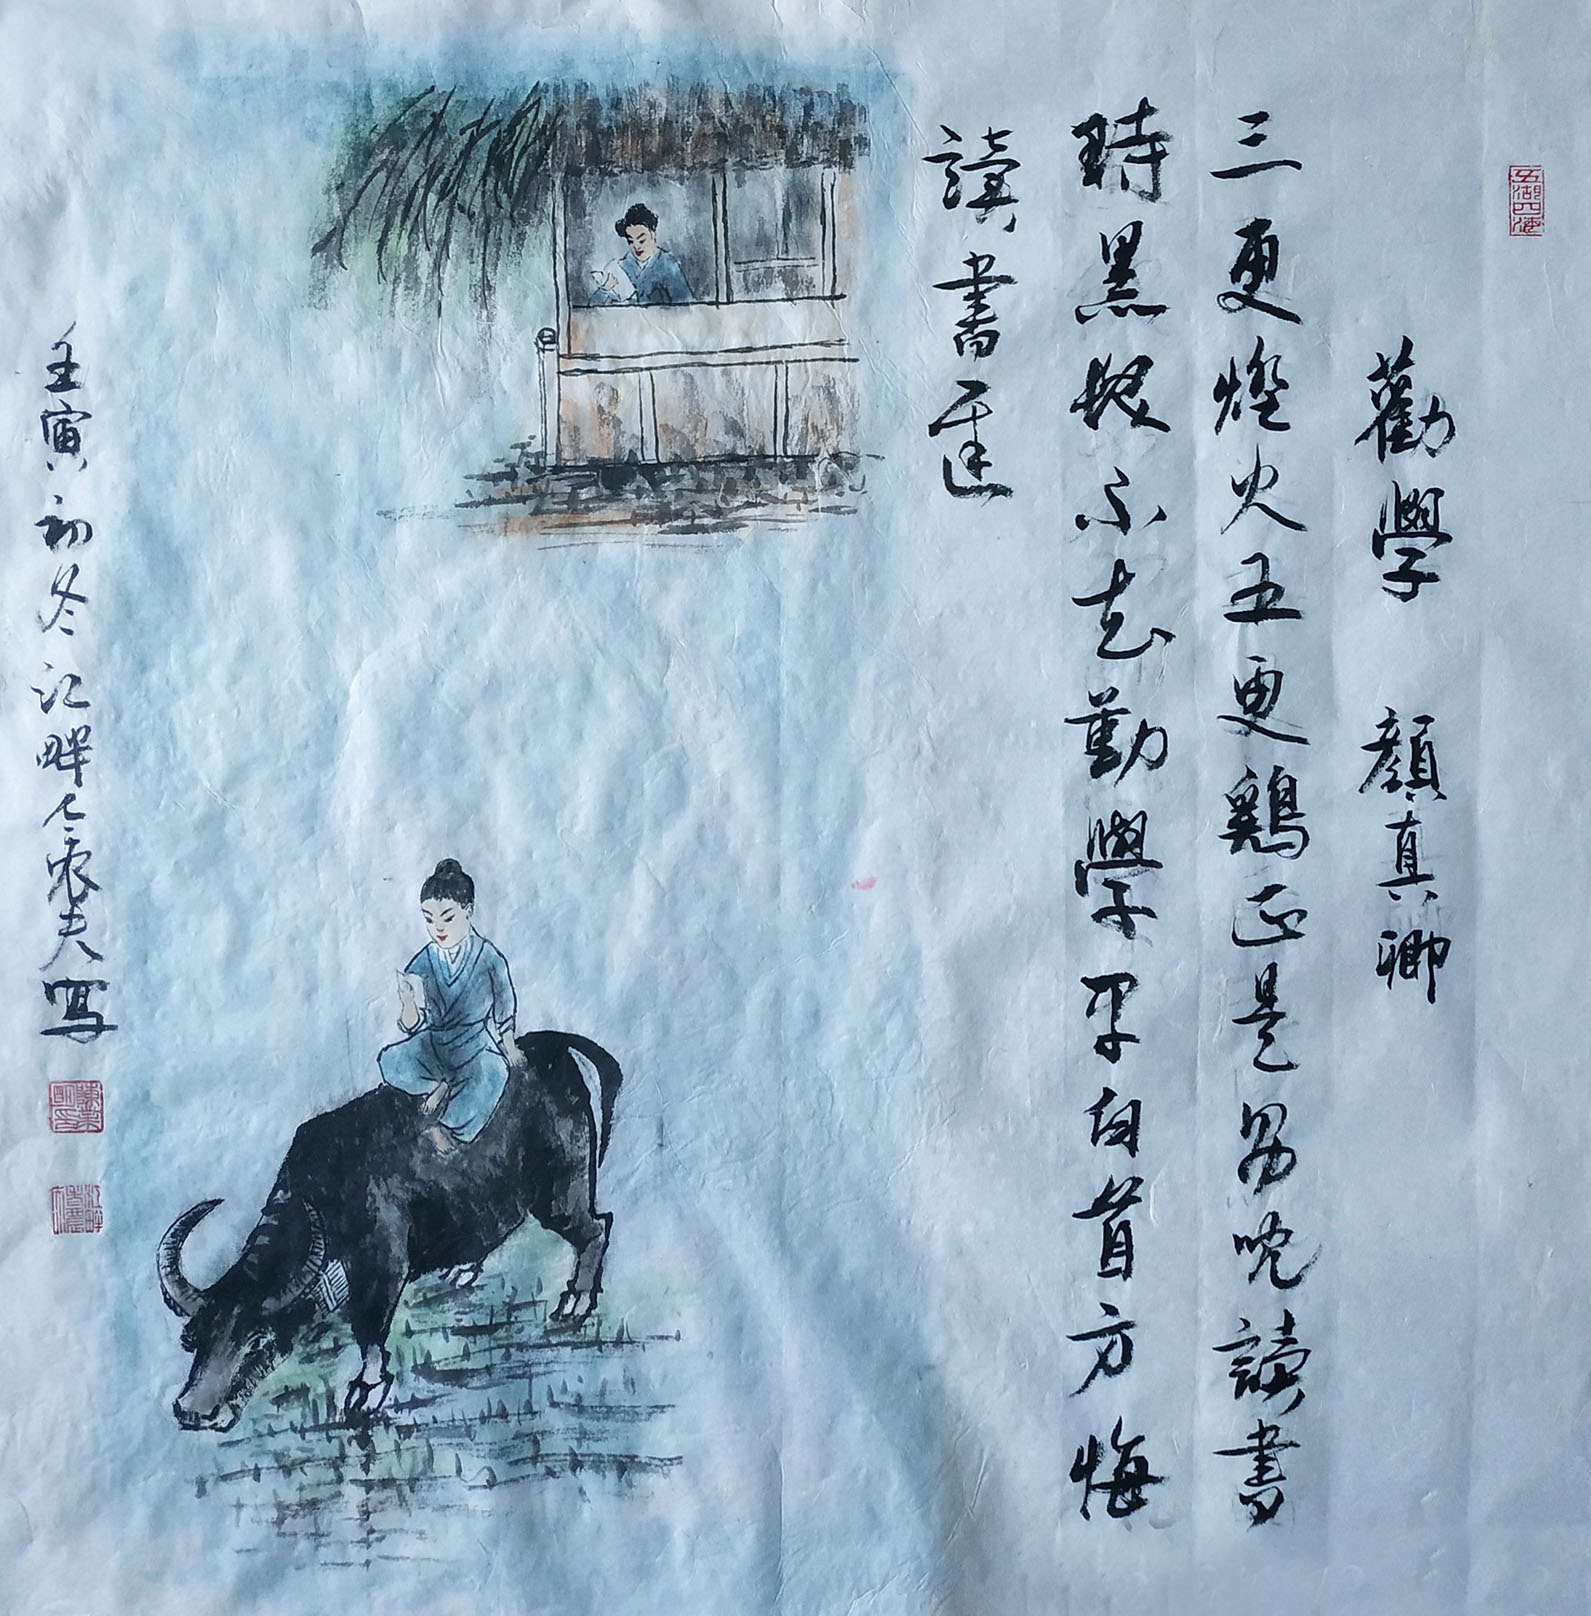 五湖四海
勸學 顏真卿
三更燈火五更鷄正是男兒讀書
時黑髮不知勤學早白首方悔
讀書遲
壬寅初冬江畔老農夫写